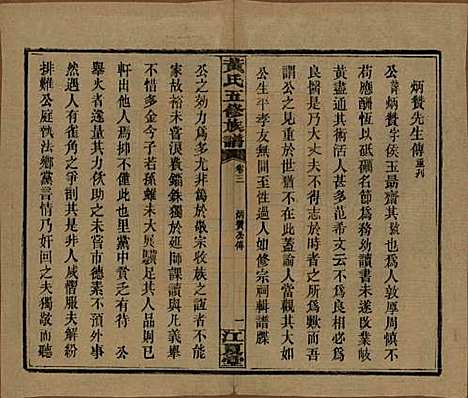 炳贊先生傳重刊
公諱炳贊字侯玉勗齋其號也為人敦厚周慎不
苟應酬恆以砥礪名節為務幼讀書未遂改業岐
黃盡通其術全活甚多范希文云不為良相當為
良醫是乃大丈夫得志不得志之所為歟而吾
謂公之所可傳者不在此蓋論人當觀其大者焉
公生平孝友無間言其至性過人如修宗祠輯譜牒
黃氏五修族譜 卷三 炳贊公傳 一 江夏堂
公之効力為多尤非於敬宗收族之誼者不能
家故裕末嘗浪費錙銖獨於延師課讀與凡義舉
不惜多金今子若孫雖未大振驥足其人品
軒出他人焉抑不但此也里黨中貴乏有待 公
舉火者遂量其力佽助之未嘗市德素不預外事
然遇人有雀角之爭則極力排解人咸慴服夫解
排難公庭執法鄉黨言情乃奸回之夫獨敬而聽